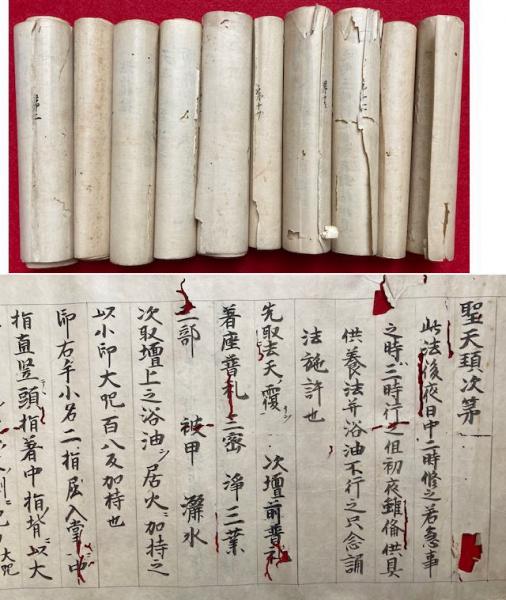 聖天次第
此法後夜日中二時修之若急事
之時三時行之但初夜雖備供具
供養法并浴油不行之只念誦
法施許也
先取去天覆 次壇前普礼
著座普礼 三密 淨三業
三部 被甲 灑水
次取壇上之浴油ヲ居火ニ加持之
以小印大咒百八反加持也
印右手小名二指屈入掌中
指直竪頭指著中指背ニ以大
大咒